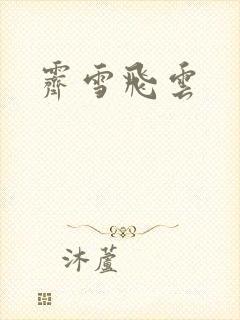 霽雪飛雲
沐蘆